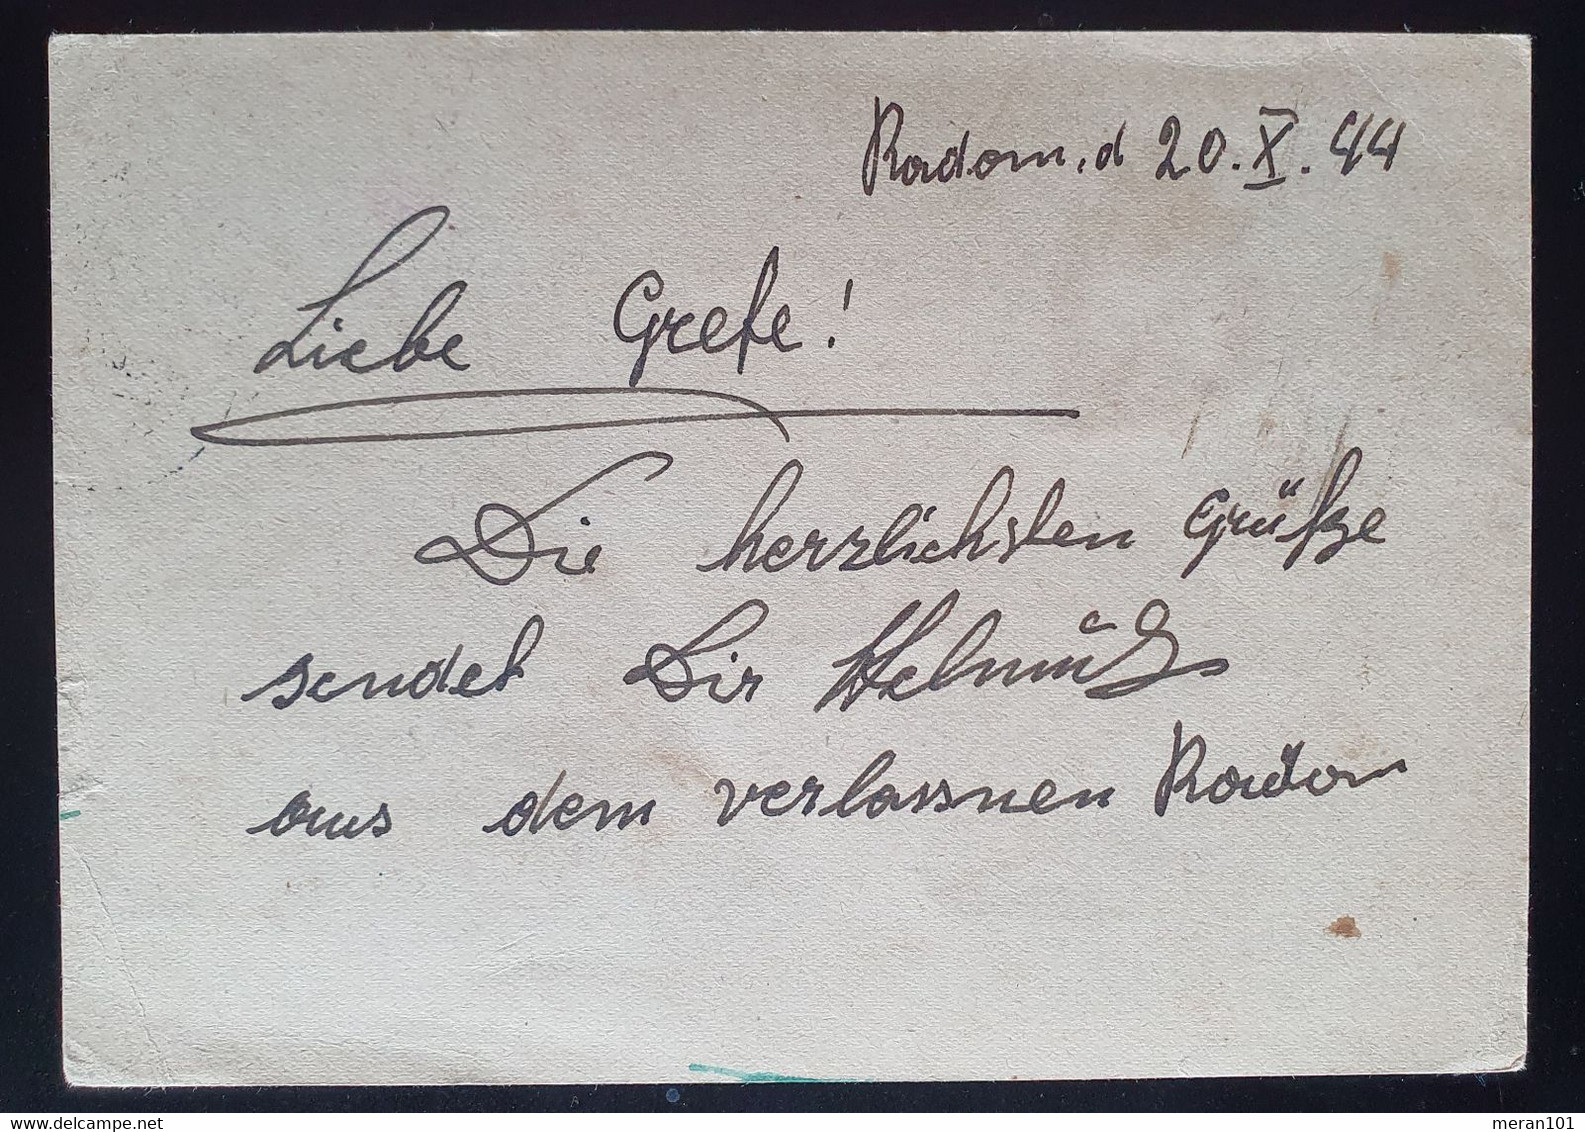 Radom, d 20. X. 44
Liebe Grete!
Die herzlichsten Grüße
sendet Dir Helmut
aus dem verlassnen Radom
www.delcampe.net
meran101